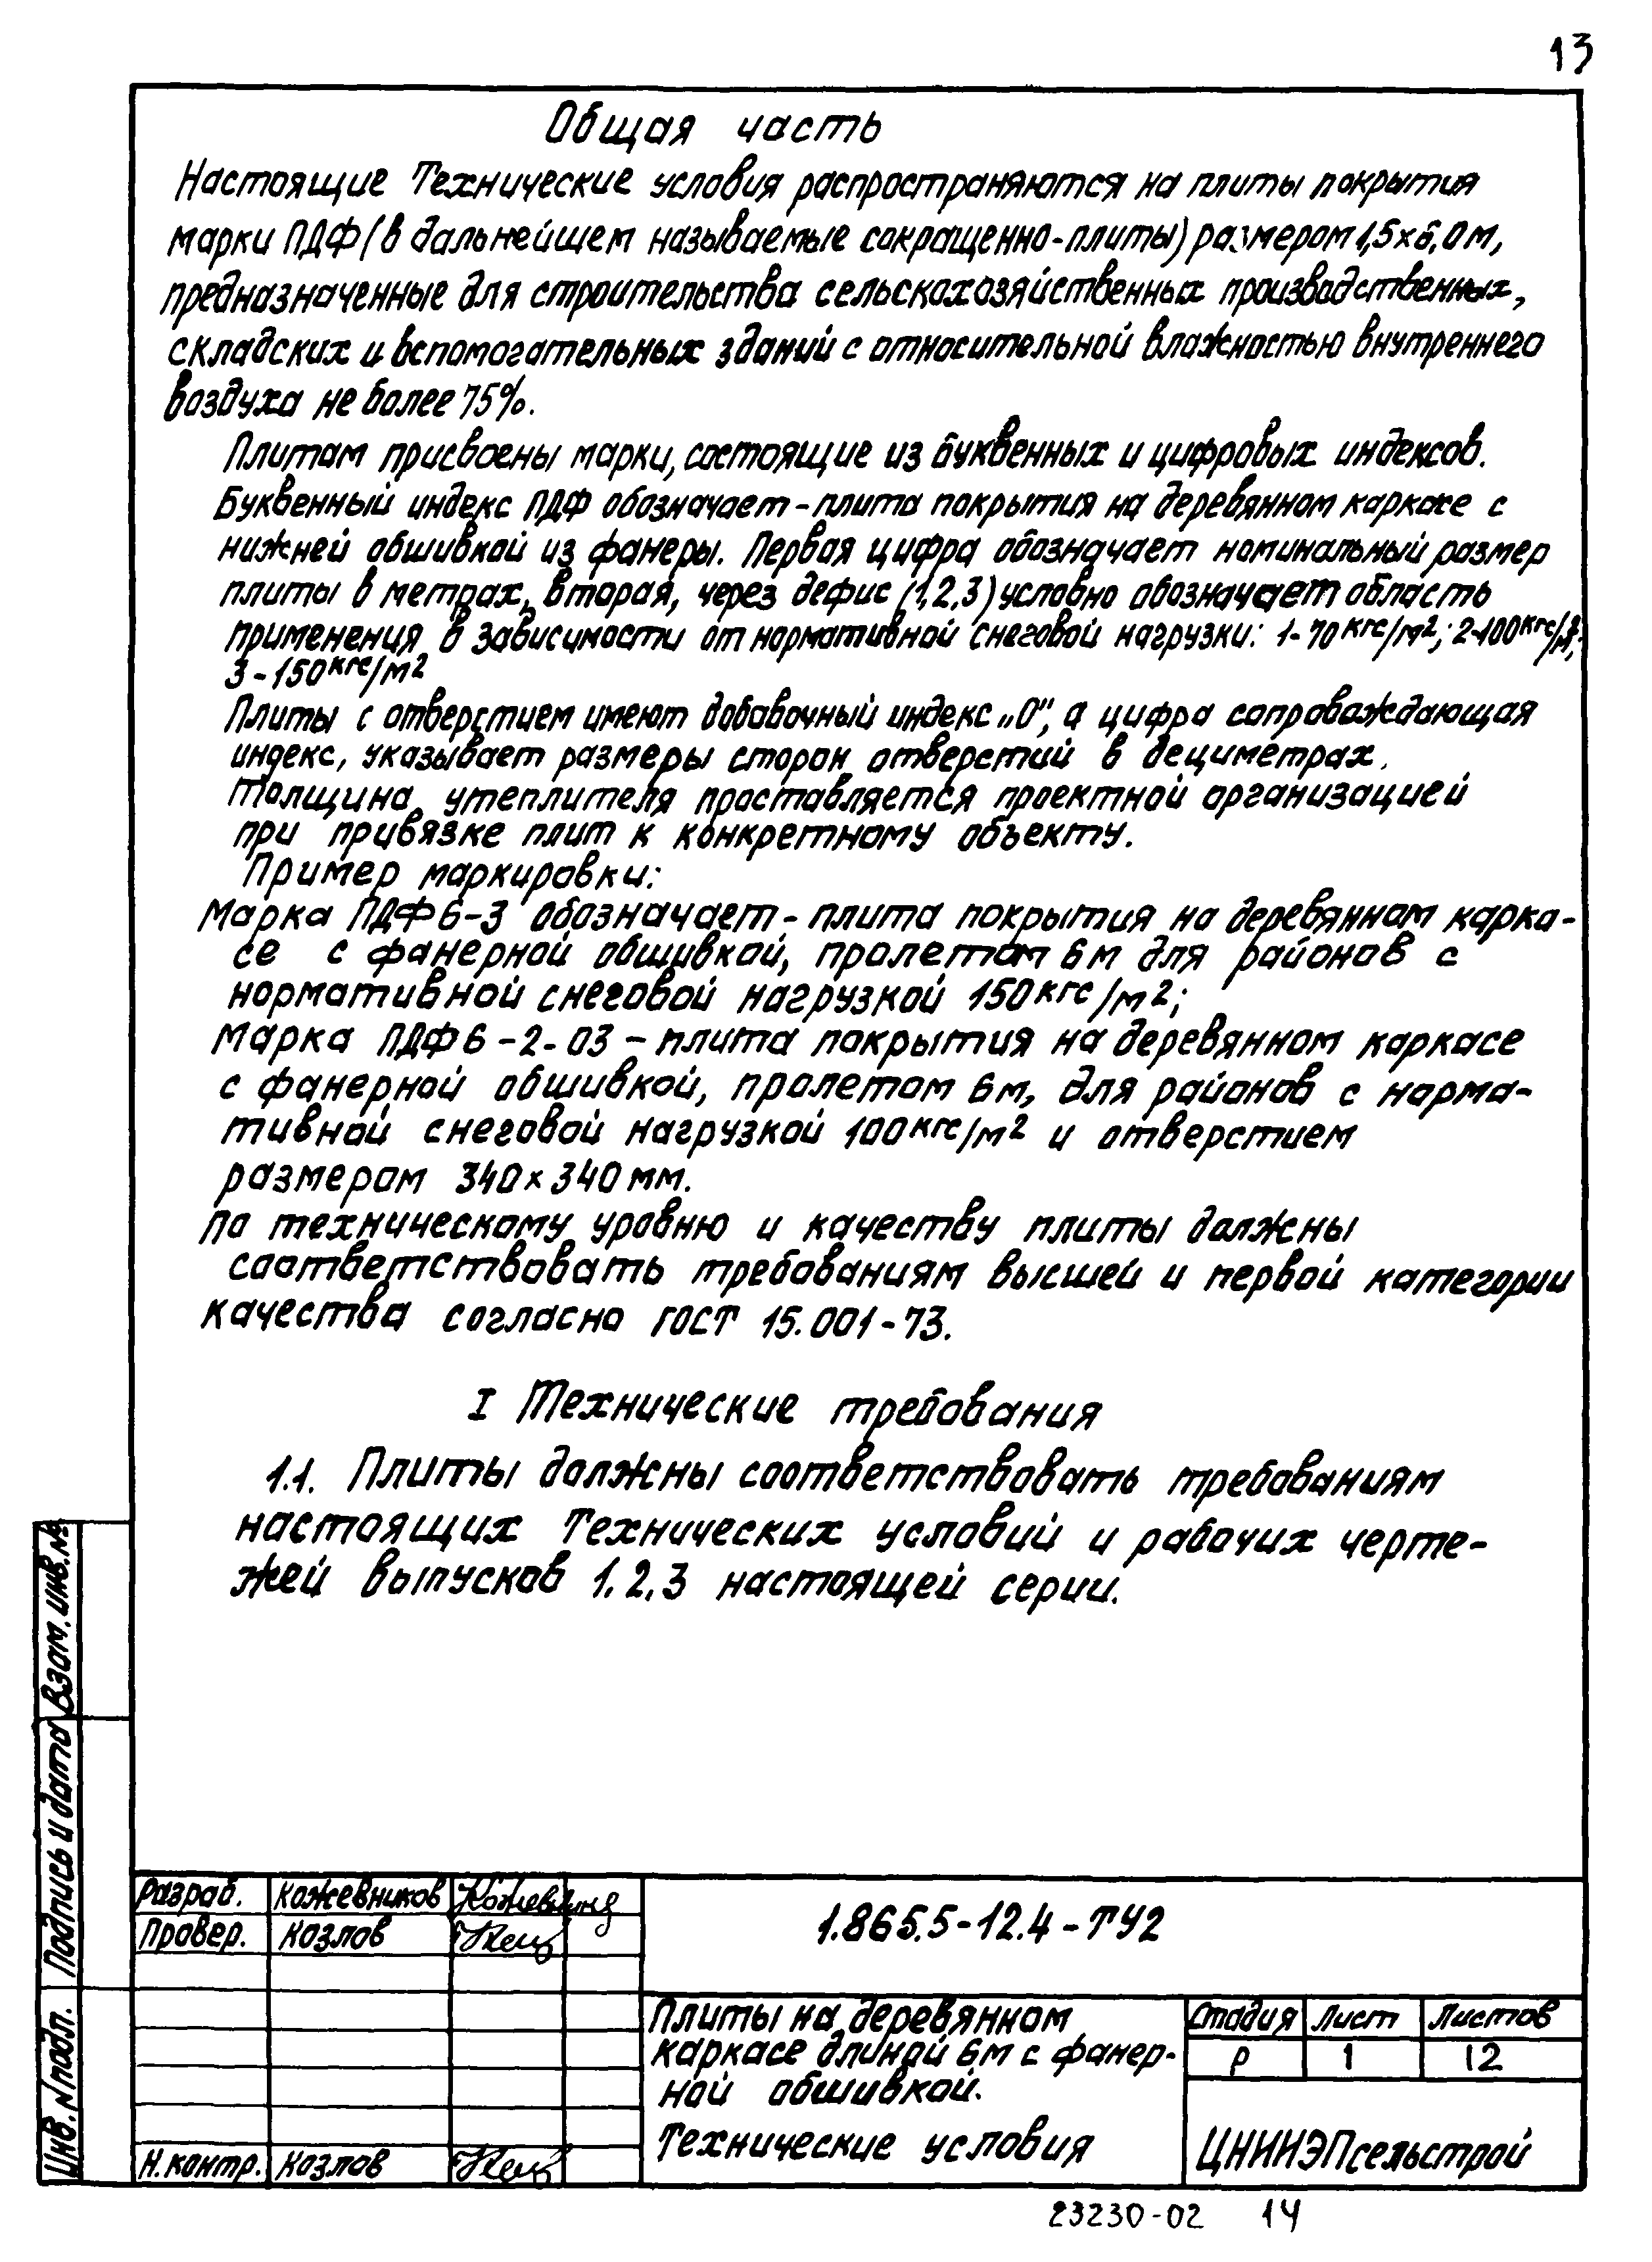 13
Общая часть
Настоящие Технические условия распространяются на плиты покрытия
марки ПДФ (в дальнейшем называемые сокращенно-плиты) размером 1,5×6,0м,
предназначенные для строительства сельскохозяйственных производственных,
складских и вспомогательных зданий с относительной влажностью внутреннего
воздуха не более 75%.
Плитам присвоены марки, состоящие из буквенных и цифровых индексов.
Буквенный индекс ПДФ обозначает - плита покрытия на деревянном каркасе с
нижней обшивкой из фанеры. Первая цифра обозначает номинальный размер
плиты в метрах, вторая, через дефис (1,2,3) условно обозначает область
применения в зависимости от нормативной снеговой нагрузки: 1-70 кгс/м²; 2-100 кгс/м²;
3-150 кгс/м²
Плиты с отверстием имеют добавочный индекс „О", а цифра сопровождающая
индекс, указывает размеры сторон отверстий в дециметрах.
Толщина утеплителя проставляется проектной организацией
при привязке плит к конкретному объекту.
Пример маркировки:
Марка ПДФ6-3 обозначает - плита покрытия на деревянном карка-
се с фанерной обшивкой, пролетом 6м для районов с
нормативной снеговой нагрузкой 150 кгс/м²;
марка ПДФ6-2-03 - плита покрытия на деревянном каркасе
с фанерной обшивкой, пролетом 6м, для районов с норма-
тивной снеговой нагрузкой 100 кгс/м² и отверстием
размером 340×340 мм.
По техническому уровню и качеству плиты должны
соответствовать требованиям высшей и первой категории
качества согласно ГОСТ 15.001-73.
I Технические требования
1.1. Плиты должны соответствовать требованиям
настоящих Технических условий и рабочих черте-
жей выпусков 1.2.3 настоящей серии.
Взам. инв. №
Подпись и дата
Инв. № подл.
Разраб. Кожевников
Провер. Козлов
Н. контр. Козлов
1.865.5-12.4-ТУ2
Плиты на деревянном
каркасе длиной 6м с фанер-
ной обшивкой.
Технические условия
Стадия Лист Листов
Р 1 12
ЦНИИЭПсельстрой
23230-02 14